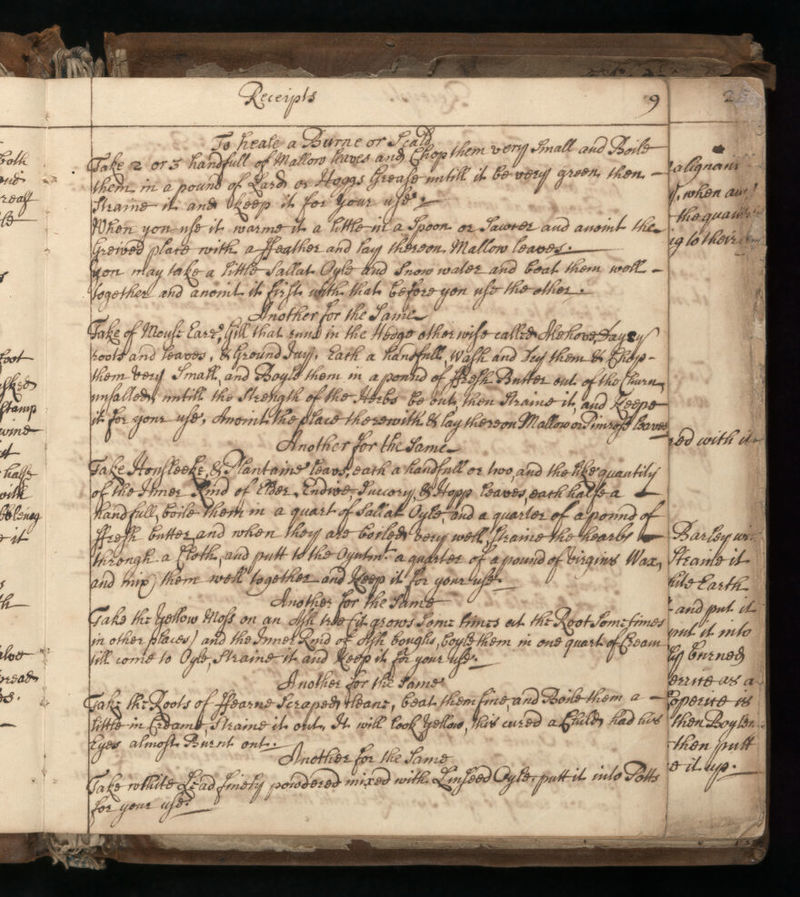 Receipts
9
To heale a Burne or Scald
Take 2 or 3 handfull of Mallow leaves and Chop them very Small and Boile
them in a pound of Lard or Hoggs Grease untill it be very green, then
Straine it and keep it for your use.
When you use it warme it a little in a Spoon or Sawcer and anoint the
Greived place with a ffeather and lay thereon Mallow leaves.
you may take a little Sallat Oyle and Snow water and beat them well
together and anoint it first with that before you use the other.
Another for the Same
Take of Mouse Eare, Gill that runs in the Hedge otherwise called Alehoof, Daysy
roots and leaves, & Ground Ivy, Each a handfull, Wash and them & Chop
them Very Small, and Boyle them in a pound of ffresh Butter out of the Churn
unsalted, untill the Strength of the Herbs be out, then Straine it, and Keepe
it for your use, Anoint the place therewith & lay thereon Mallow or Primrose leaves
Another for the Same
Take Housleeke, & Plantaine leavs, each a handfull or two, and the like quantity
of the Inner Rind of Elder, Endive, Succory, & Hopp leaves, each halfe a
handfull, boile them in a quart of Sallat Oyle, and a quarter of a pound of
ffresh butter, and when they are boiled very well, Straine the hearbs
through a Cloth, and putt to the Oyntmt. a quarter of a pound of virgins Wax,
and mix them well together and Keep it for your use.
Another for the Same
Take the Yellow Moss on an Ash tree (it grows Some times at the Root Sometimes
in other places) and the Inner Rind of Ash boughs, boyle them in one quart of Cream
till come to Oyle, Straine it and Keep it for your use.
Another for the Same
Take the Roots of ffearne Scraped cleane, beat them fine and Boile them a
little in Creame, Straine it out, It will look Yellow, this cured a Child, had his
Eyes almost Burnt out.
Another for the Same
Take white Lead finely powdered mixed with Linseed Oyle, putt it into Potts
for your use.
alignant
, when any
the
to their
red with it
Barley
Straine it
Earth
and put it
put it into
burned
as a
is
then Boyle
then putt
it up.